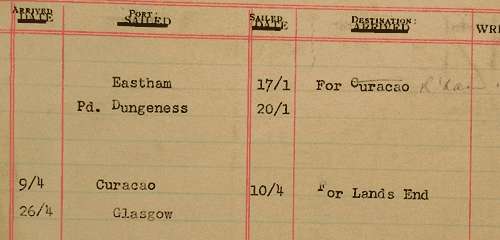 ARRIVED PORT: SAILED DESTINATION:
DATE SAILED DATE ARRIVED WRE
Eastham 17/1 For Curacao
Pd. Dungeness 20/1
9/4 Curacao 10/4 For Lands End
26/4 Glasgow